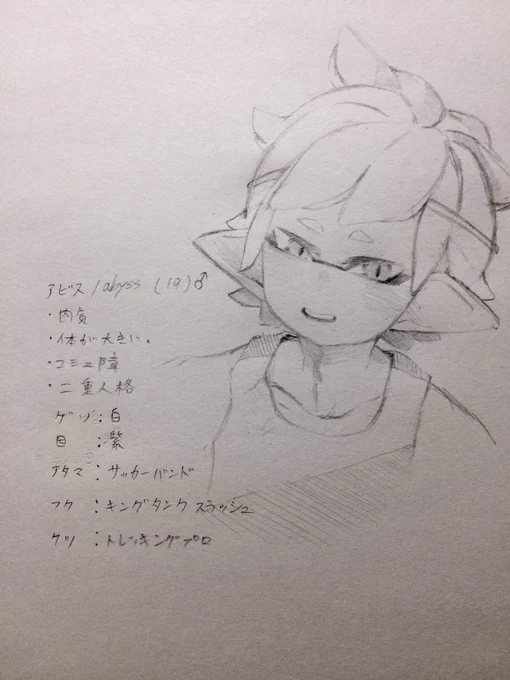 アビス / abyss (19) ♂
・内気
・体が大きい。
・コミュ障
・二重人格
ゲソ:白
目:紫
アタマ:サッカーバンド
フク:キングタンク スラッシュ
クツ:トレッキングプロ